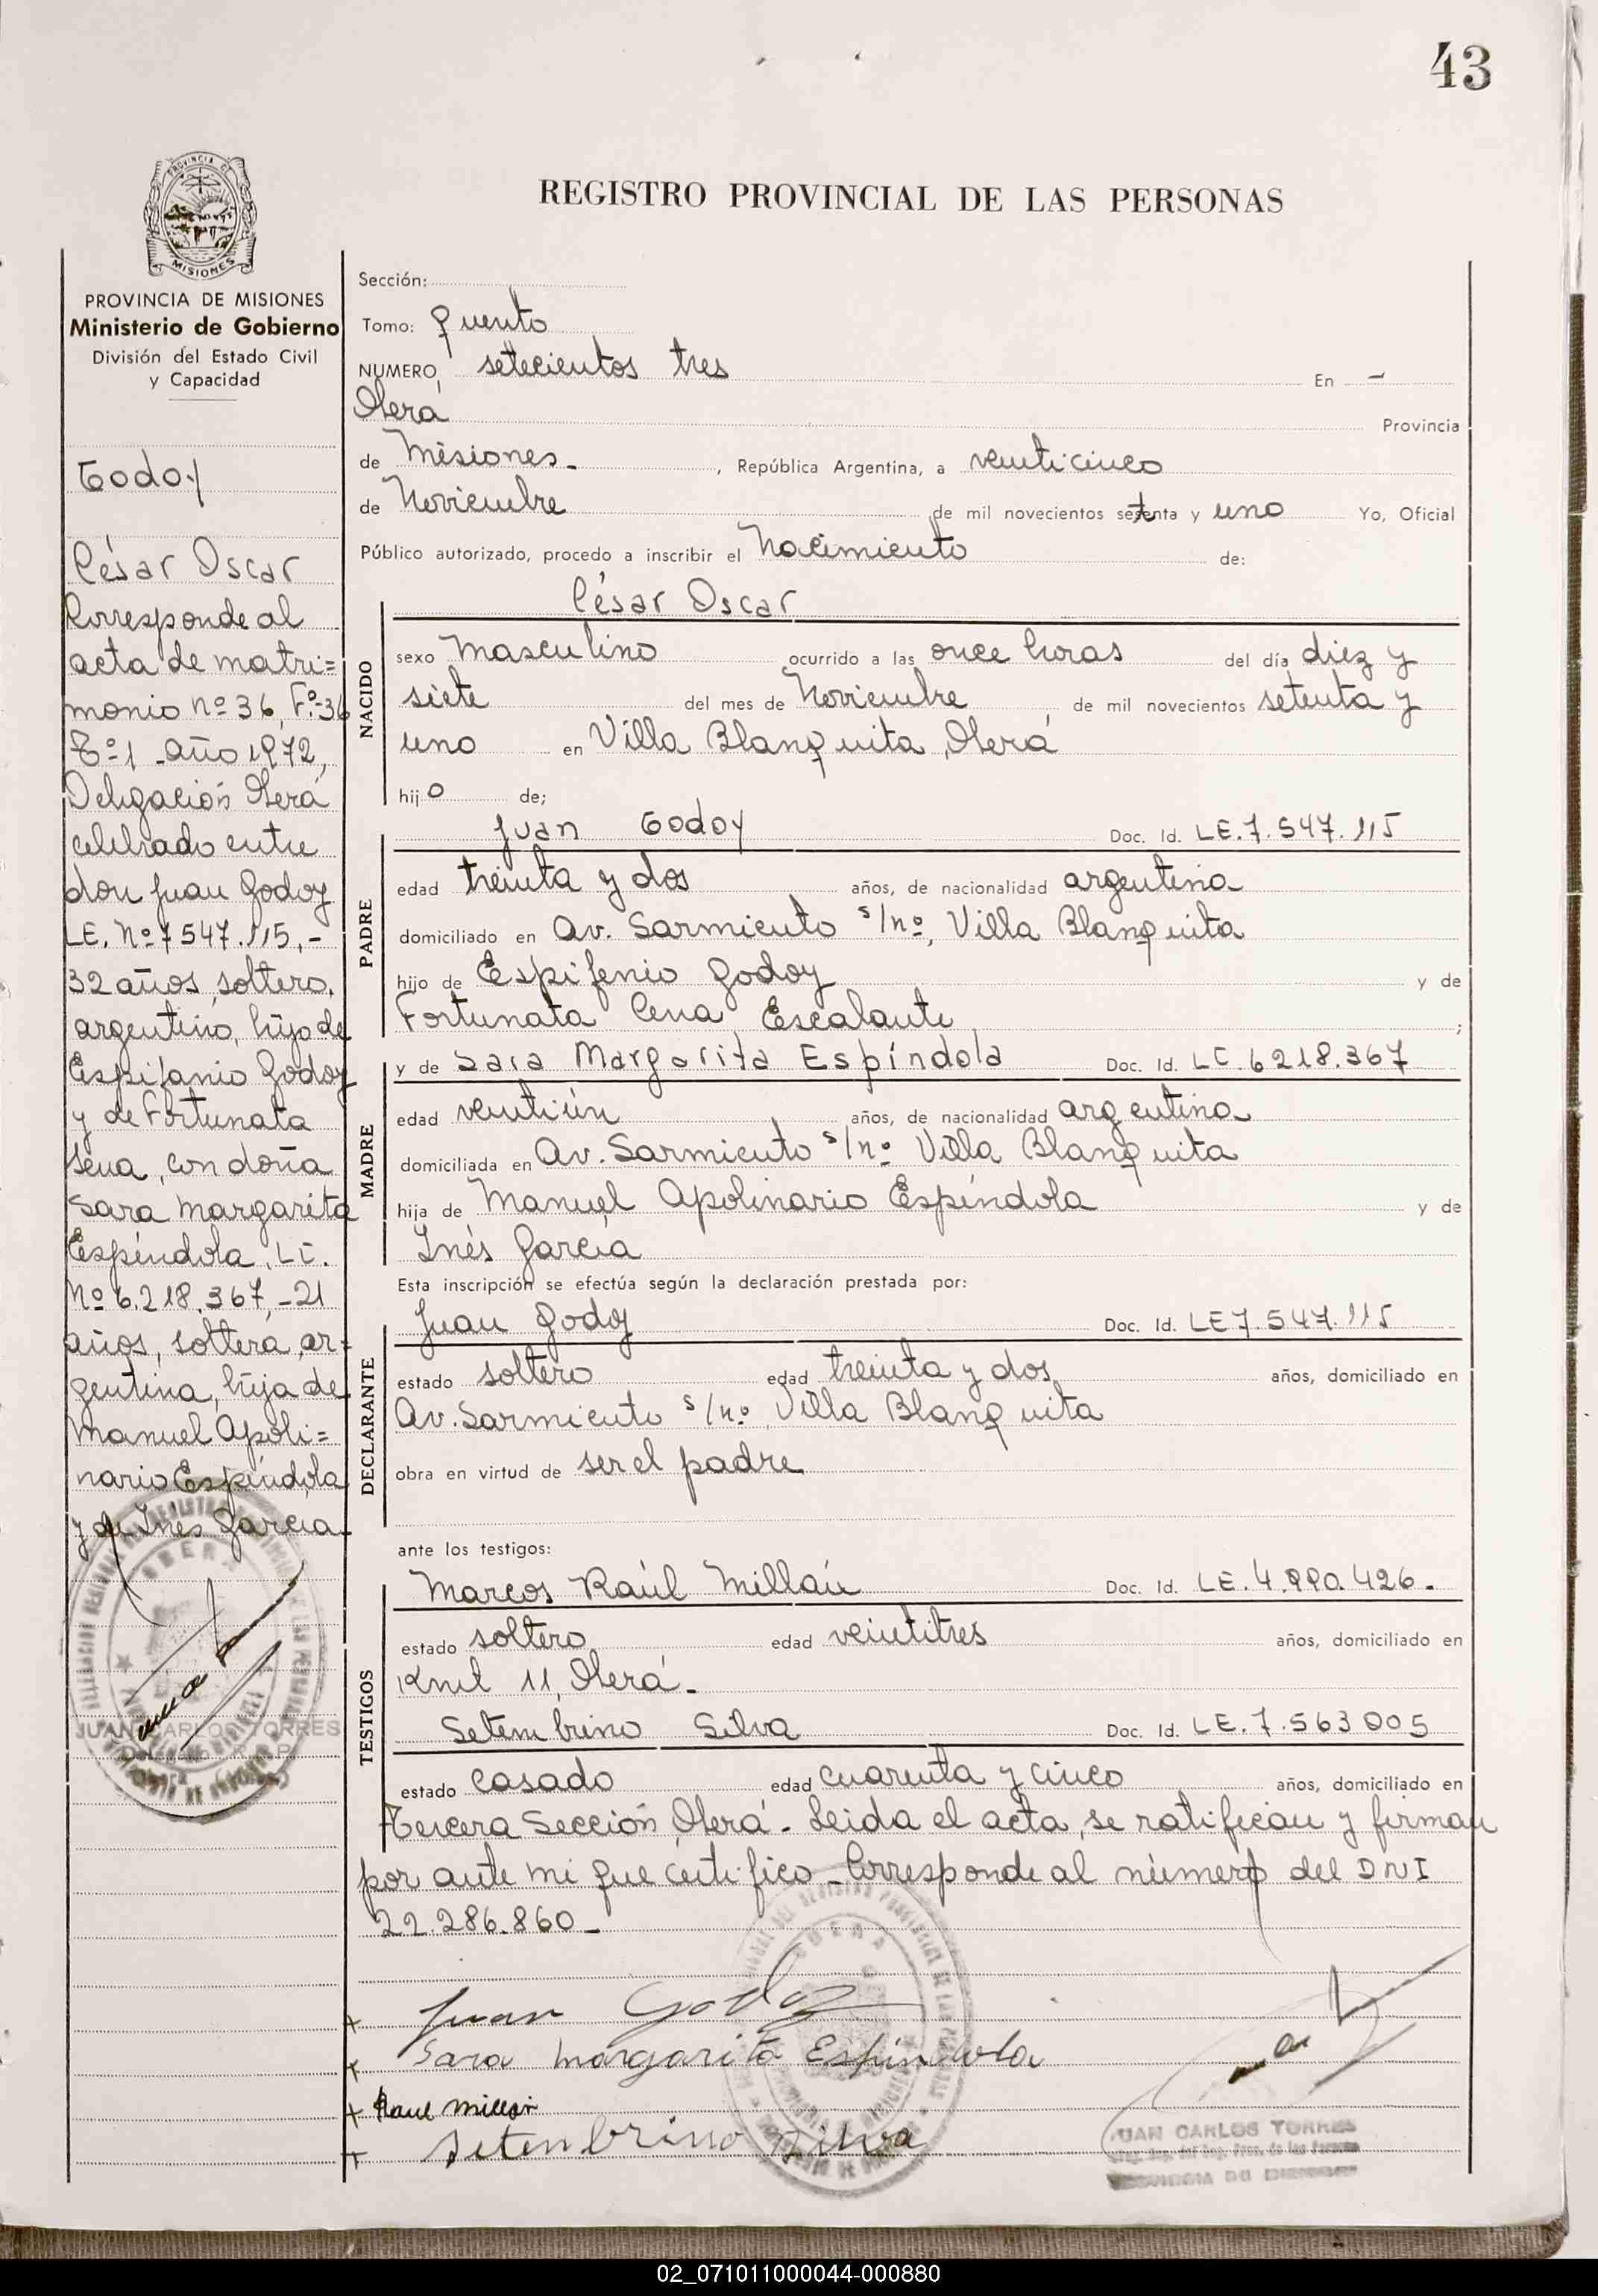 43
PROVINCIA DE
MISIONES
REGISTRO PROVINCIAL DE LAS PERSONAS
PROVINCIA DE MISIONES
Ministerio de Gobierno
División del Estado Civil
y Capacidad
Godoy
César Oscar
Corresponde al
acta de matri=
monio nº 36, Fº-36
Tº-1 año 1972,
Delegación Oberá
celebrado entre
don Juan Godoy
LE. Nº 7547.115,-
32 años, soltero,
argentino, hijo de
Espifanio Godoy
y de Fortunata
Sena, con doña
Sara Margarita
Espíndola, LC.
Nº 6.218.367,-21
años, soltera, ar=
gentina, hija de
Manuel Apoli=
nario Espíndola
y de Inés García.
JUAN CARLOS TORRES
Sección:
Tomo: quinto
NUMERO, setecientos tres En -
Oberá Provincia
de Misiones.- , República Argentina, a veinticinco
de Noviembre de mil novecientos setenta y uno Yo, Oficial
Público autorizado, procedo a inscribir el Nacimiento de:
NACIDO
César Oscar
sexo masculino ocurrido a las once horas del día diez y
siete del mes de Noviembre de mil novecientos setenta y
uno en Villa Blanquita, Oberá
hijo de;
PADRE
Juan Godoy Doc. Id. LE.7.547.115
edad treinta y dos años, de nacionalidad argentina
domiciliado en Av. Sarmiento s/nº, Villa Blanquita
hijo de Espifenio Godoy y de
Fortunata Cena Escalante ;
MADRE
y de Sara Margarita Espíndola Doc. Id. LC.6218.367
edad veintiún años, de nacionalidad argentina
domiciliada en Av. Sarmiento s/nº Villa Blanquita
hija de Manuel Apolinario Espíndola y de
Inés García
Esta inscripción se efectúa según la declaración prestada por:
DECLARANTE
Juan Godoy Doc. Id. LE7.547.115
estado soltero edad treinta y dos años, domiciliado en
Av. Sarmiento s/nº, Villa Blanquita
obra en virtud de ser el padre
ante los testigos:
TESTIGOS
Marcos Raúl Millán Doc. Id. LE.4.990.426.
estado soltero edad veintitres años, domiciliado en
Kml 11, Oberá.
Setembrino Silva Doc. Id. LE.7.563005
estado casado edad cuarenta y cinco años, domiciliado en
Tercera Sección Oberá. Leida el acta, se ratifican y firman
por ante mi que certifico. Corresponde al número del DNI
22.286.860-
x Juan Godoy
x Sara Margarita Espíndola
x Raul Millán
x Setenbrino Silva
JUAN CARLOS TORRES
02_071011000044-000880